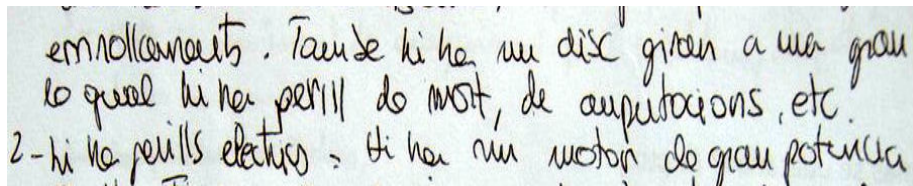 enrollaments. També hi ha un disc giran a una gran
lo qual hi ha perill de mort, de amputacions, etc.
2-hi ha perills electrics = Hi ha un motor de gran potencia